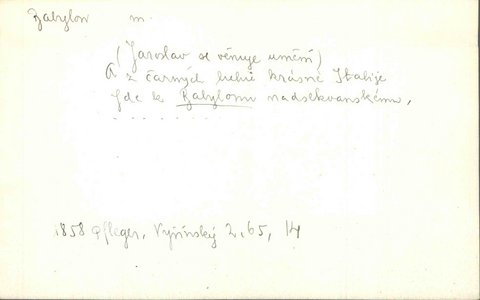 Babylon m.
(Jaroslav se věnuje umění)
A z čarných luhů krásné Italije
jde k Babylonu nadsekvanskému,
- - - - - - -
1858 Pfleger, Vyšínský 2, 65, 14